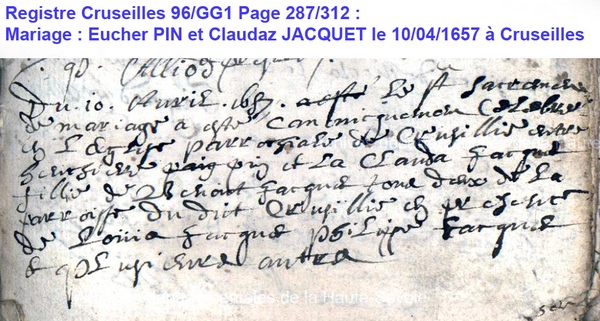 Registre Cruseilles 96/GG1 Page 287/312 :
Mariage : Eucher PIN et Claudaz JACQUET le 10/04/1657 à Cruseilles
Du 10. Avril 1657. a esté le st sacrement
de mariage a esté canoniquemen celebré
en l'eglise parrochiale de Crusillie entre
pin et la Clauda Jacque
fillie de Jacque tous deux de la
parroisse du dict Crusillie en presence
de Louis Jacque philippe Jacque
& plusieurs autre
de la Haute-Savoie